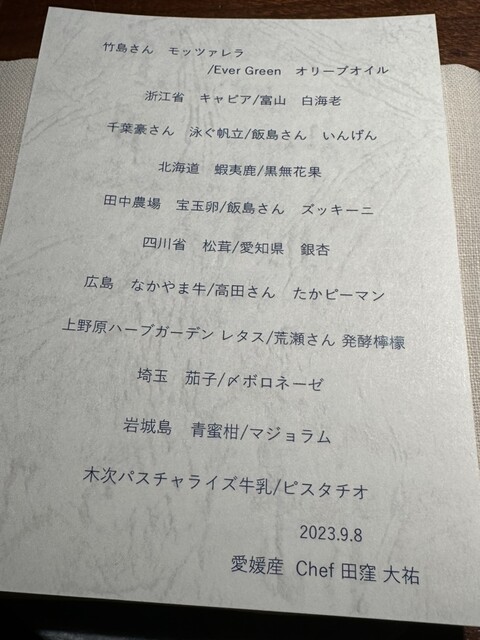 竹島さん　モッツァレラ
/Ever Green　オリーブオイル
浙江省　キャビア/富山　白海老
千葉豪さん　泳ぐ帆立/飯島さん　いんげん
北海道　蝦夷鹿/黒無花果
田中農場　宝玉卵/飯島さん　ズッキーニ
四川省　松茸/愛知県　銀杏
広島　なかやま牛/高田さん　たかピーマン
上野原ハーブガーデン レタス/荒瀬さん 発酵檸檬
埼玉　茄子/〆ボロネーゼ
岩城島　青蜜柑/マジョラム
木次パスチャライズ牛乳/ピスタチオ
2023.9.8
愛媛産 Chef 田窪 大祐